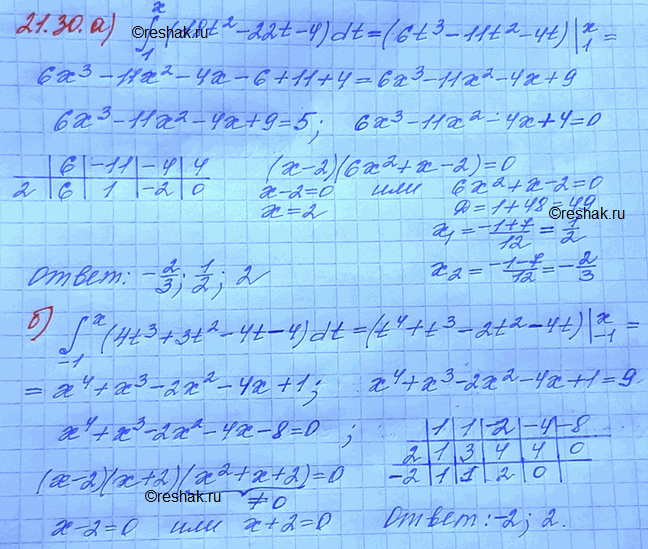 21.30. а) ∫₁ˣ (18t² - 22t - 4) dt = (6t³ - 11t² - 4t) |₁ˣ =
6x³ - 11x² - 4x - 6 + 11 + 4 = 6x³ - 11x² - 4x + 9
6x³ - 11x² - 4x + 9 = 5; 6x³ - 11x² - 4x + 4 = 0
| 6 | -11 | -4 | 4
2 | 6 | 1 | -2 | 0
(x-2)(6x² + x - 2) = 0
x - 2 = 0 или 6x² + x - 2 = 0
x = 2 D = 1 + 48 = 49
x₁ = (-1+7)/12 = 1/2
x₂ = (-1-7)/12 = -2/3
Ответ: -2/3; 1/2; 2
б) ∫₋₁ˣ (4t³ + 3t² - 4t - 4) dt = (t⁴ + t³ - 2t² - 4t) |₋₁ˣ =
= x⁴ + x³ - 2x² - 4x + 1; x⁴ + x³ - 2x² - 4x + 1 = 9
x⁴ + x³ - 2x² - 4x - 8 = 0;
| 1 | 1 | -2 | -4 | -8
2 | 1 | 3 | 4 | 4 | 0
-2 | 1 | 1 | 2 | 0 |
(x-2)(x+2)(x² + x + 2) = 0
≠0
x - 2 = 0 или x + 2 = 0 Ответ: -2; 2.
©reshak.ru
©reshak.ru
©reshak.ru